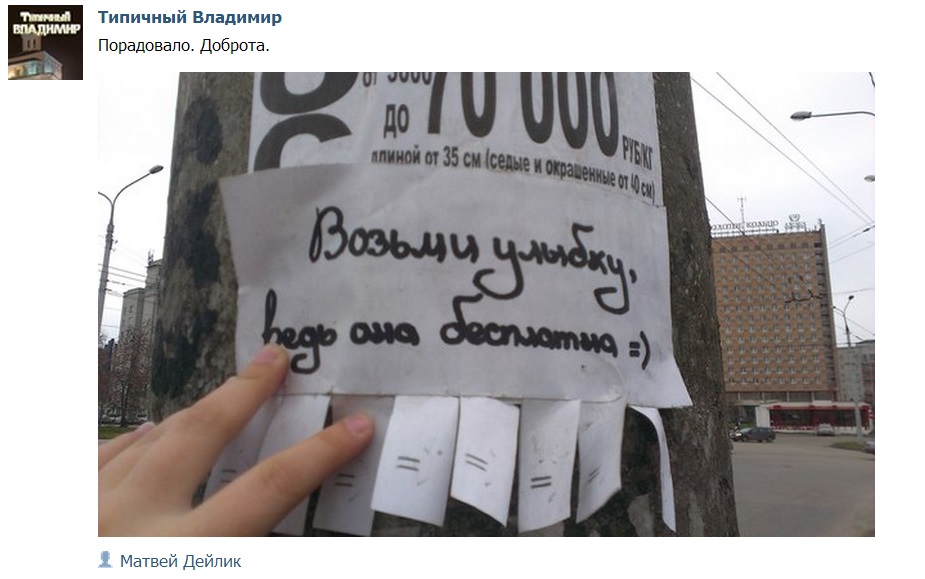 Типичный
ВЛАДИМИР
Типичный Владимир
Порадовало. Доброта.
70 000
до
РУБ/КГ
длиной от 35 см (седые и окрашенные от 40 см)
Возьми улыбку,
ведь она бесплатна =)
=
=
=
=
=
=
Матвей Дейлик